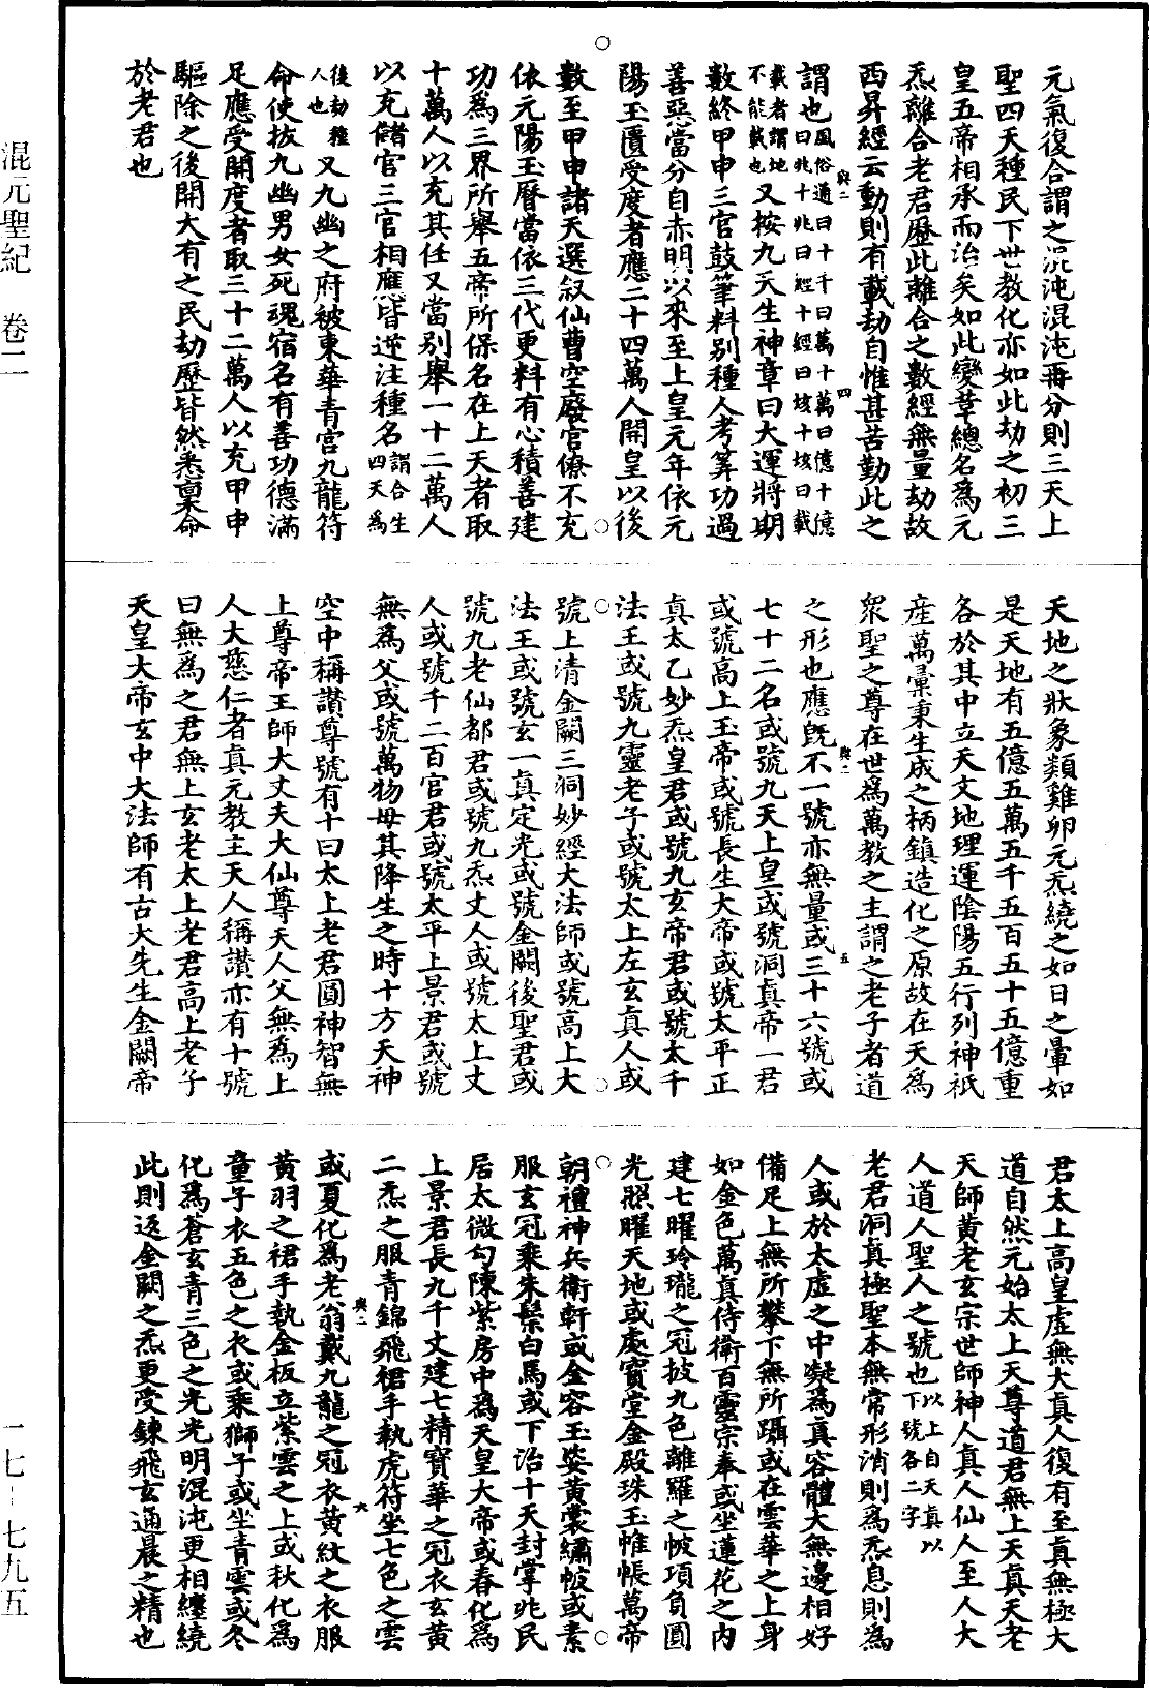 元氣復合謂之混沌混沌再分則三天上
聖四天種民下世教化亦如此劫之初三
皇五帝相承而治矣如此變革總名為元
炁離合老君歷此離合之數經無量劫故
西昇經云動則有載劫自惟甚苦勤此之
與二 四
謂也風俗通曰十千曰萬十萬曰億十億曰兆十兆曰經十經曰垓十垓曰載
載者謂地不能載也又按九天生神章曰大運將期
數終甲申三官鼓筆料別種人考筭功過
善惡當分自赤明以來至上皇元年依元
陽玉匱受度者應二十四萬人開皇以後
數至甲申諸天選叙仙曹空廢官僚不充
依元陽玉曆當依三代更料有心積善建
功為三界所舉五帝所保名在上天者取
十萬人以充其任又當別舉一十二萬人
以充儲官三官相應皆逆注種名謂合生四天為
後劫種人也又九幽之府被東華青宮九龍符
命使拔九幽男女死魂宿名有善功德滿
足應受開度者取三十二萬人以充甲申
驅除之後開大有之民劫歷皆然悉稟命
於老君也
天地之狀象類雞卵元炁繞之如日之暈如
是天地有五億五萬五千五百五十五億重
各於其中立天文地理運陰陽五行列神祇
產萬彙秉生成之柄鎮造化之原故在天為
眾聖之尊在世為萬教之主謂之老子者道
與二 五
之形也應既不一號亦無量或三十六號或
七十二名或號九天上皇或號洞真帝一君
或號高上玉帝或號長生大帝或號太平正
真太乙妙炁皇君或號九玄帝君或號太千
法王或號九靈老子或號太上左玄真人或
號上清金闕三洞妙經大法師或號高上大
法王或號玄一真定光或號金闕後聖君或
號九老仙都君或號九炁丈人或號太上丈
人或號千二百官君或號太平上景君或號
無為父或號萬物母其降生之時十方天神
空中稱讚尊號有十曰太上老君圓神智無
上尊帝王師大丈夫大仙尊天人父無為上
人大慈仁者真元教主天人稱讚亦有十號
曰無為之君無上玄老太上老君高上老子
天皇大帝玄中大法師有古大先生金闕帝
君太上高皇虛無大真人復有至真無極大
道自然元始太上天尊道君無上天真天老
天師黃老玄宗世師神人真人仙人至人大
人道人聖人之號也以上自天真以下號各二字
老君洞真極聖本無常形消則為炁息則為
人或於太虛之中凝為真容體大無邊相好
備足上無所攀下無所躡或在雲華之上身
如金色萬真侍衛百靈宗奉或坐蓮花之內
建七曜玲瓏之冠披九色離羅之帔項負圓
光照曜天地或處寶堂金殿珠玉帷帳萬帝
朝禮神兵衛軒或金容玉姿黃裳繡帔或素
服玄冠乘朱鬃白馬或下治十天封掌兆民
居太微勾陳紫房中為天皇大帝或春化為
上景君長九千丈建七精寶華之冠衣玄黃
二炁之服青錦飛裙手執虎符坐七色之雲
與二 六
或夏化為老翁戴九龍之冠衣黃紋之衣服
黃羽之裙手執金板立紫雲之上或秋化為
童子衣五色之衣或乘獅子或坐青雲或冬
化為蒼玄青三色之光光明混沌更相纏繞
此則返金闕之炁更受鍊飛玄通晨之精也
混元聖紀 卷二
一七-七九五